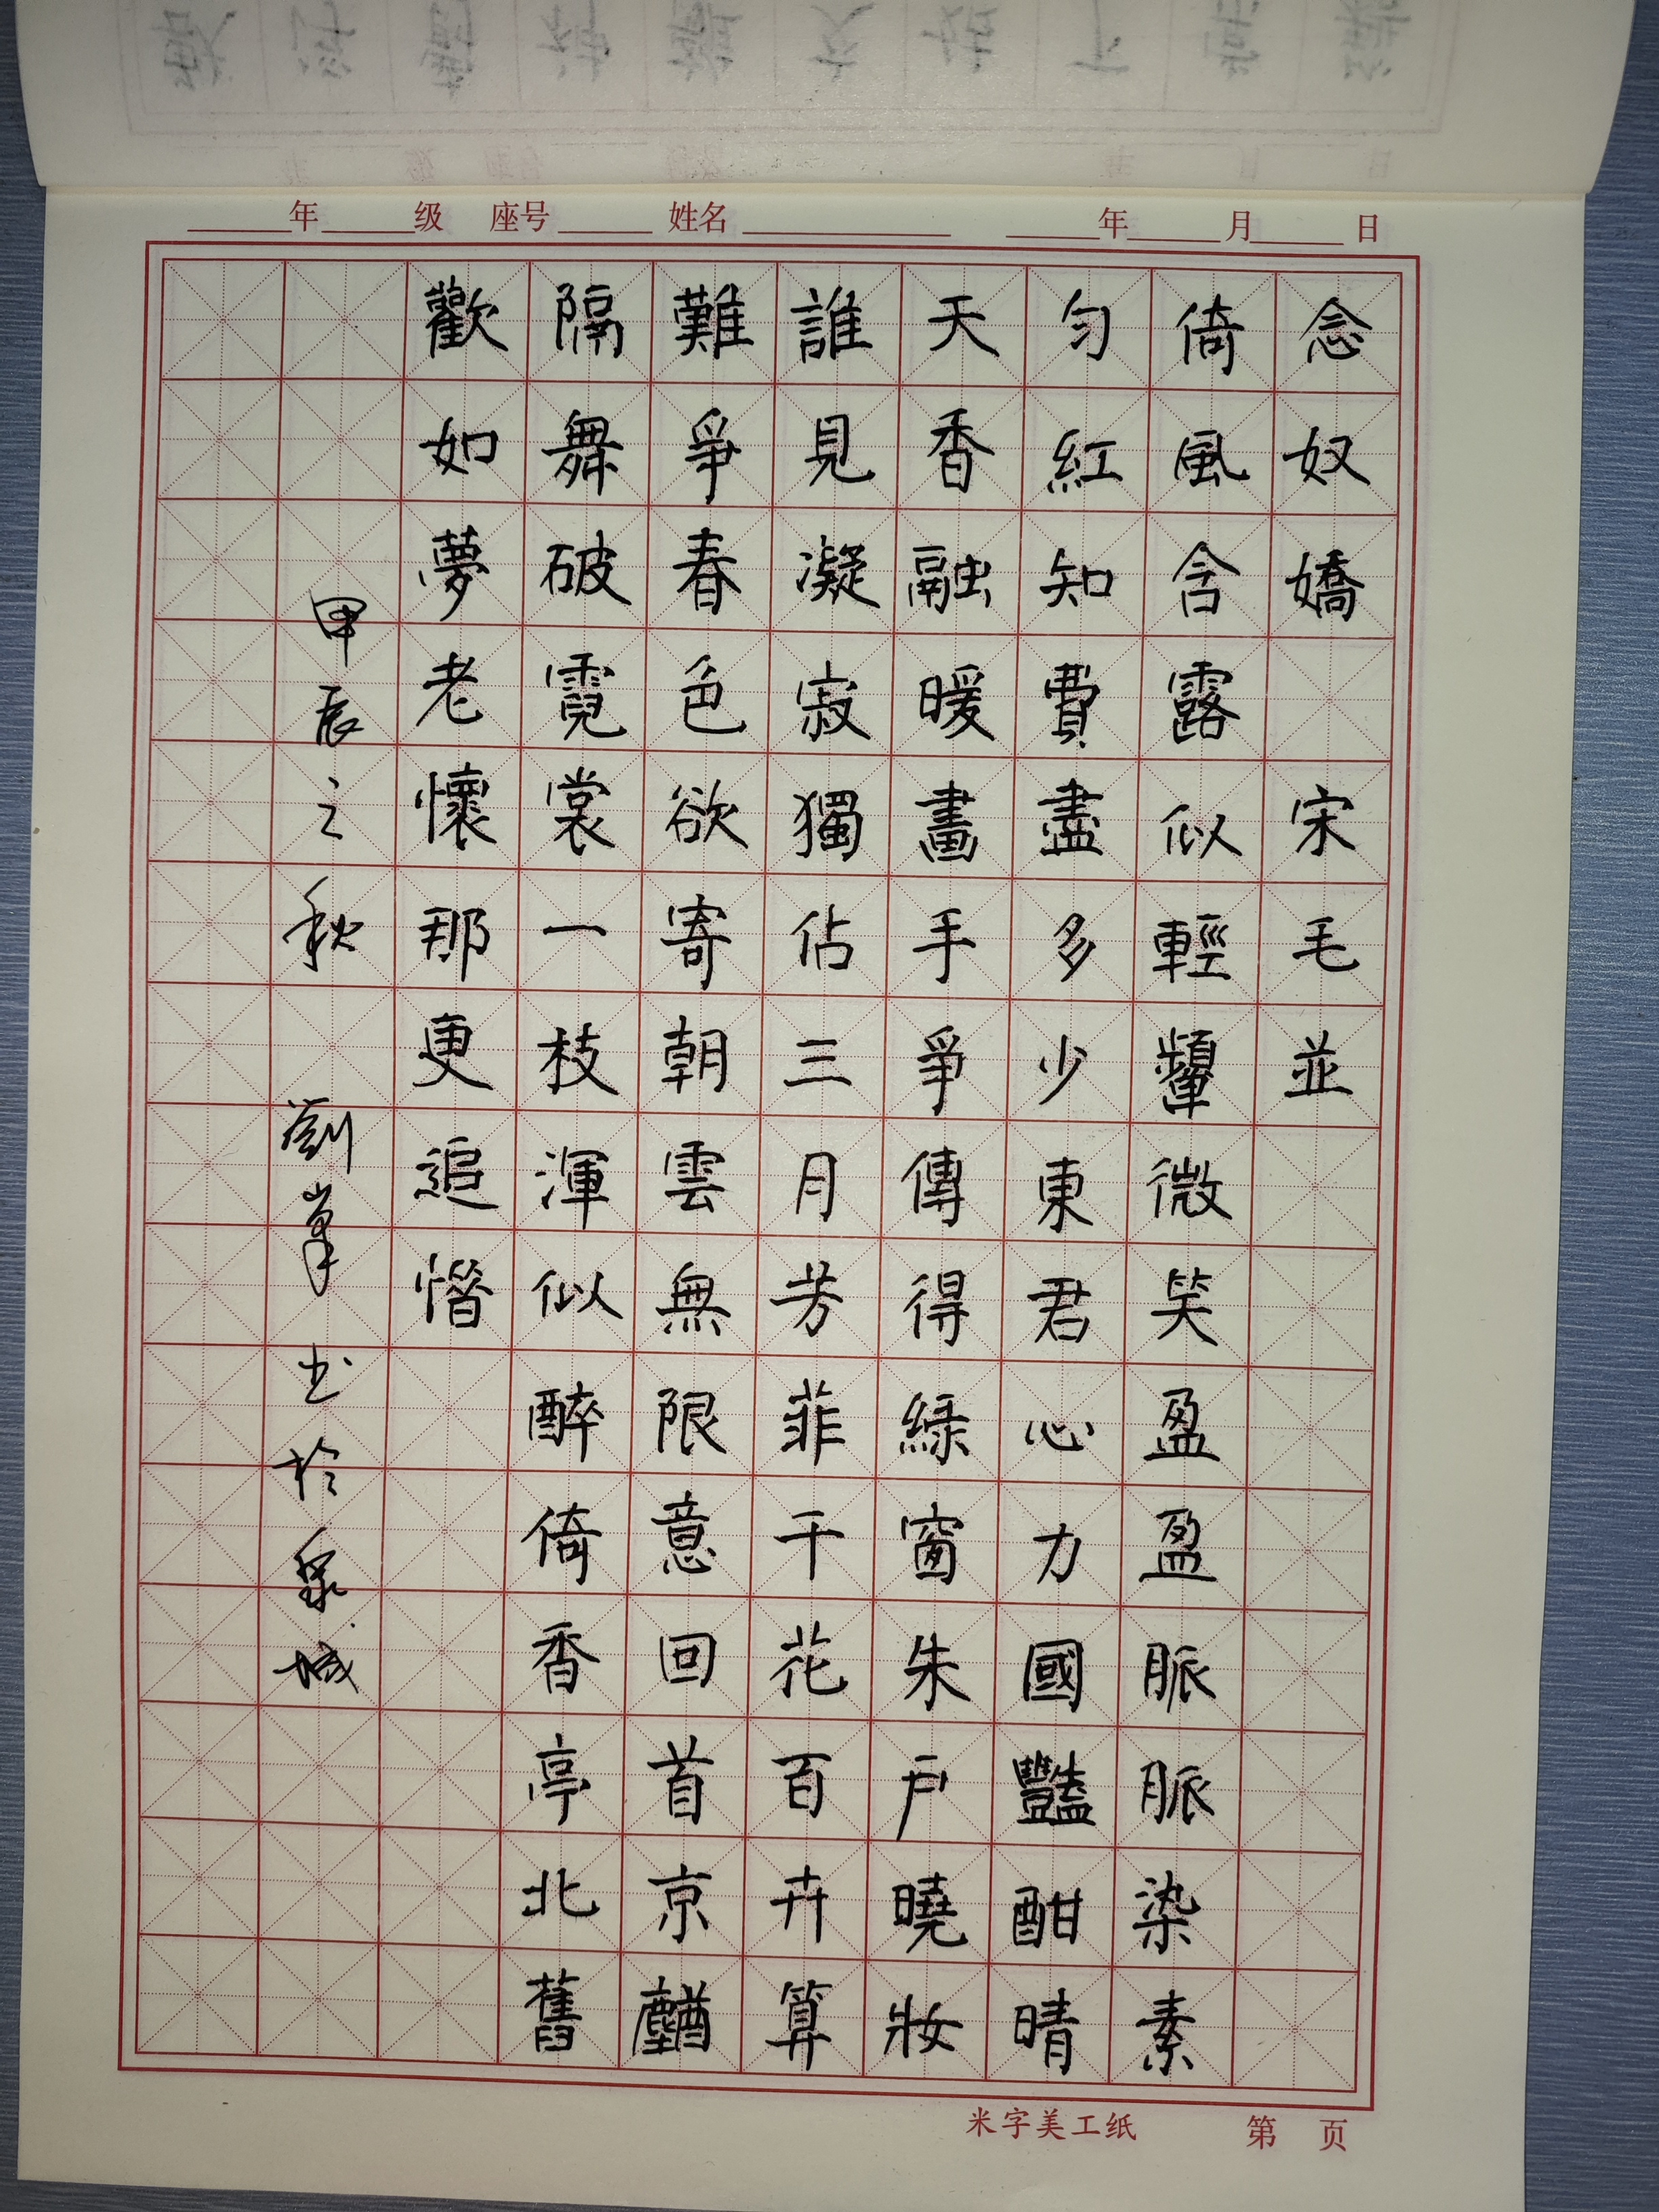 年 级 座号 姓名 年 月 日
念奴嬌 宋 毛並
倚風含露似輕顰微笑盈盈脈脈染素
勻紅知費盡多少東君心力國豔酣晴
天香融暖畫手爭傳得綠窗朱戶曉妝
誰見凝寂獨佔三月芳菲千花百卉算
難爭春色欲寄朝雲無限意回首京塵猶
隔舞破霓裳一枝渾似醉倚香亭北舊
歡如夢老懷那更追惜
甲辰之秋 劉 書於泉城
米字美工纸 第 页